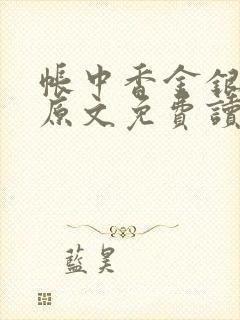 帳中香金銀
原文免費讀
藍昊